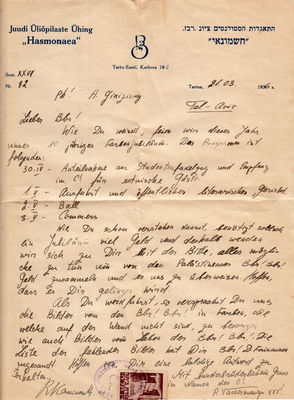 Juudi Üliõpilaste Ühing
"Hasmonaea"
התאגדות הסטודנטים ציונ. רבז.
"חשמונאי"
Tartu-Eesti, Karlova 18-2
Sem. XXVI
Nr. 82
Tartus, 21.03. 1936 a.
Pb! A. Ginzburg
Tel-Aviv
Lieber Bbr!
Wie Du weisst, feiern wir dieses Jahr
unser 10 jähriges Farbenjubiläum. Das Programm ist
folgender:
30.IV - Anteilnahme am Studentenfackelzug und Empfang
im für estnische Gäste.
1.V - Ausfahrt und öffentliches literarisches Gericht.
2.V - Ball
3.V - Commers
Wie Du schon verstehen kannst, benötigt solch
ein Jubiläum viel Geld und deshalb wenden
wir sich zu Dir mit der Bitte, alles mögliche
zu tun um von den Palästinenser Bbr! Bbr!
Geld zusammeln und es uns zu überweisen. Hoffen,
dass es Dir gelingen wird.
Als Du wegfuhrst, so versprachst Du uns
die Bilder von den Bbr! Bbr! in Farben, die
welche auf der Wand nicht sind, zu besorgen
wie auch Bilder vom Leben der Bbr! Bbr! Die
Liste der fehlenden Bildern hat Dir Bbr! D.
zugesandt. Hoffen Dir eine baldige Antwort zu
erhalten.
Mit bundesbrüderlichem Gruss
im Namen des